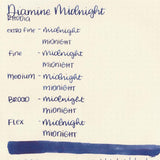 Diamine Midnight
RHODIA
extra fine - midnight
MIDNIGHT
fine - midnight
MIDNIGHT
medium - midnight
MIDNIGHT
BROAD - midnight
MIDNIGHT
FLEX - midnight
MIDNIGHT